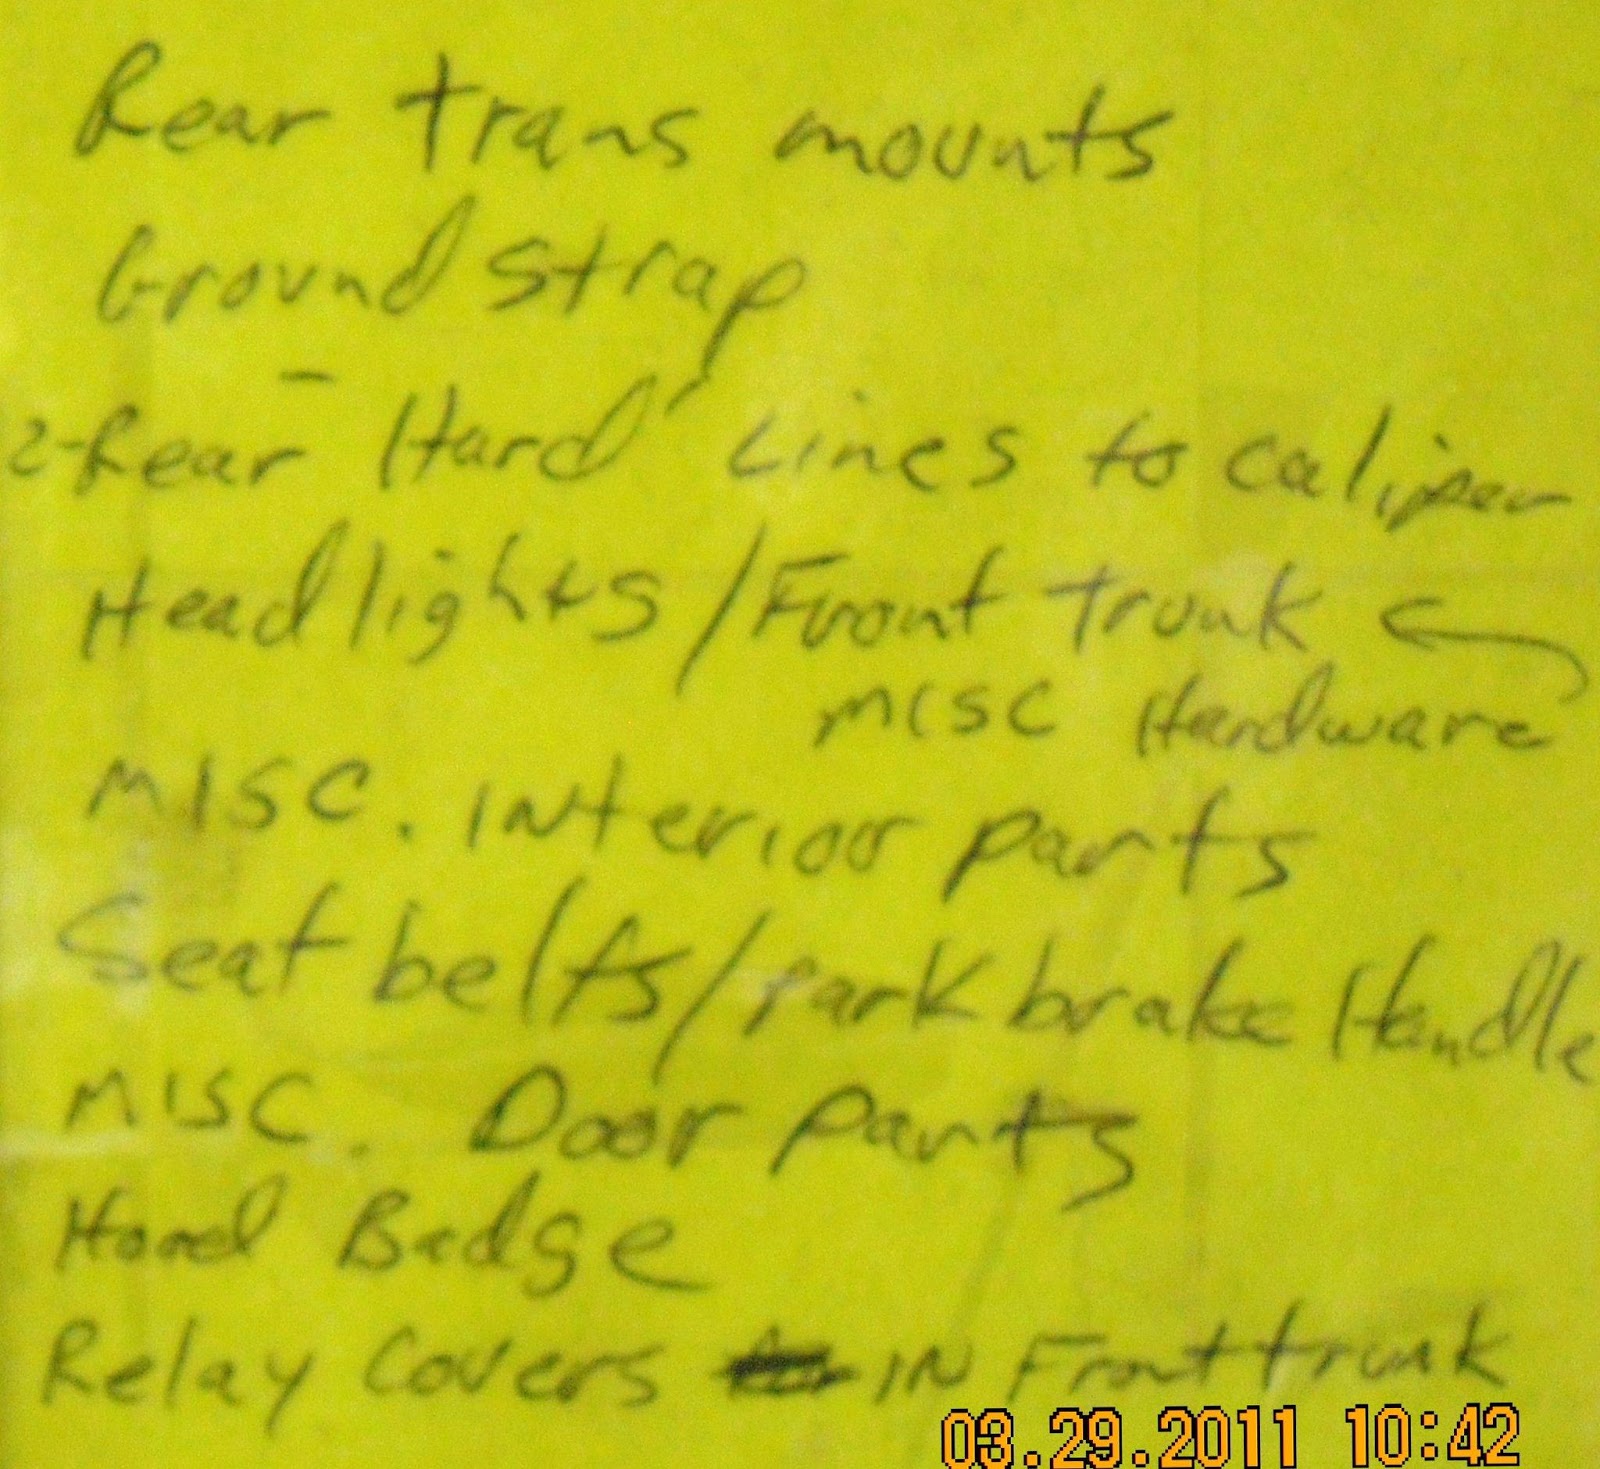 Rear trans mounts
Ground strap
2-Rear Hard Lines to caliper
Headlights / Front trunk
MISC Hardware
MISC. INterior parts
Seat belts / park brake Handle
MISC. Door parts
Hood Badge
Relay Covers IN Front trunk
03.29.2011 10:42